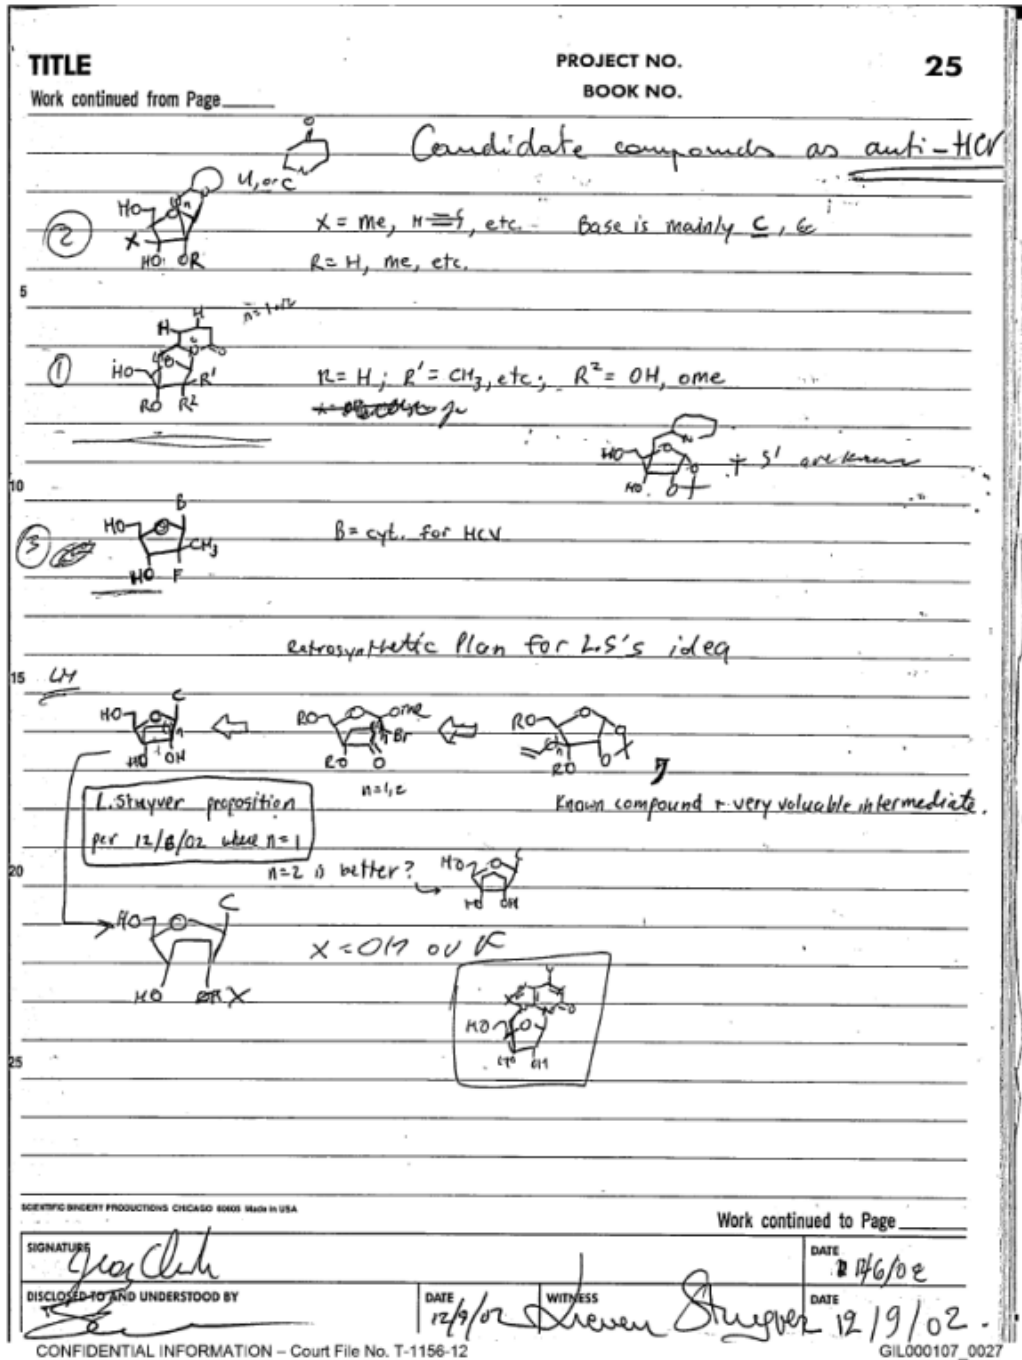 TITLE
PROJECT NO.
25
Work continued from Page
BOOK NO.
Candidate compounds as anti-HCV
O
U, or C
HO
n
② X = me, H≡, etc. Base is mainly C,
X
HO OR R = H, me, etc.
5
H H n=1 or 2
O
① HO R' R = H; R' = CH3, etc; R² = OH, ome
RO R²
HO O + S' are known
HO O
10
B
③ HO O B = cyt. for HCV
CH3
HO F
Retrosynthetic Plan for L.S's idea
15
LH
HO O C RO O ome RO O
n n Br n O
HO OH RO O RO O
n=1,2
L. Stuyver proposition Known compound + very valuable intermediate.
per 12/6/02 where n=1
20
n=2 is better? HO O
HO OH
HO O C
X = OH ou F
HO X
Y
X N N O
HO O
HO OH
25
SCIENTIFIC BINDERY PRODUCTIONS CHICAGO 60605 Made in USA
Work continued to Page
SIGNATURE
DATE
12/6/02
DISCLOSED TO AND UNDERSTOOD BY
DATE
12/9/02
WITNESS
Lieven Stuyver
DATE
12/9/02.
CONFIDENTIAL INFORMATION – Court File No. T-1156-12
GIL000107_0027